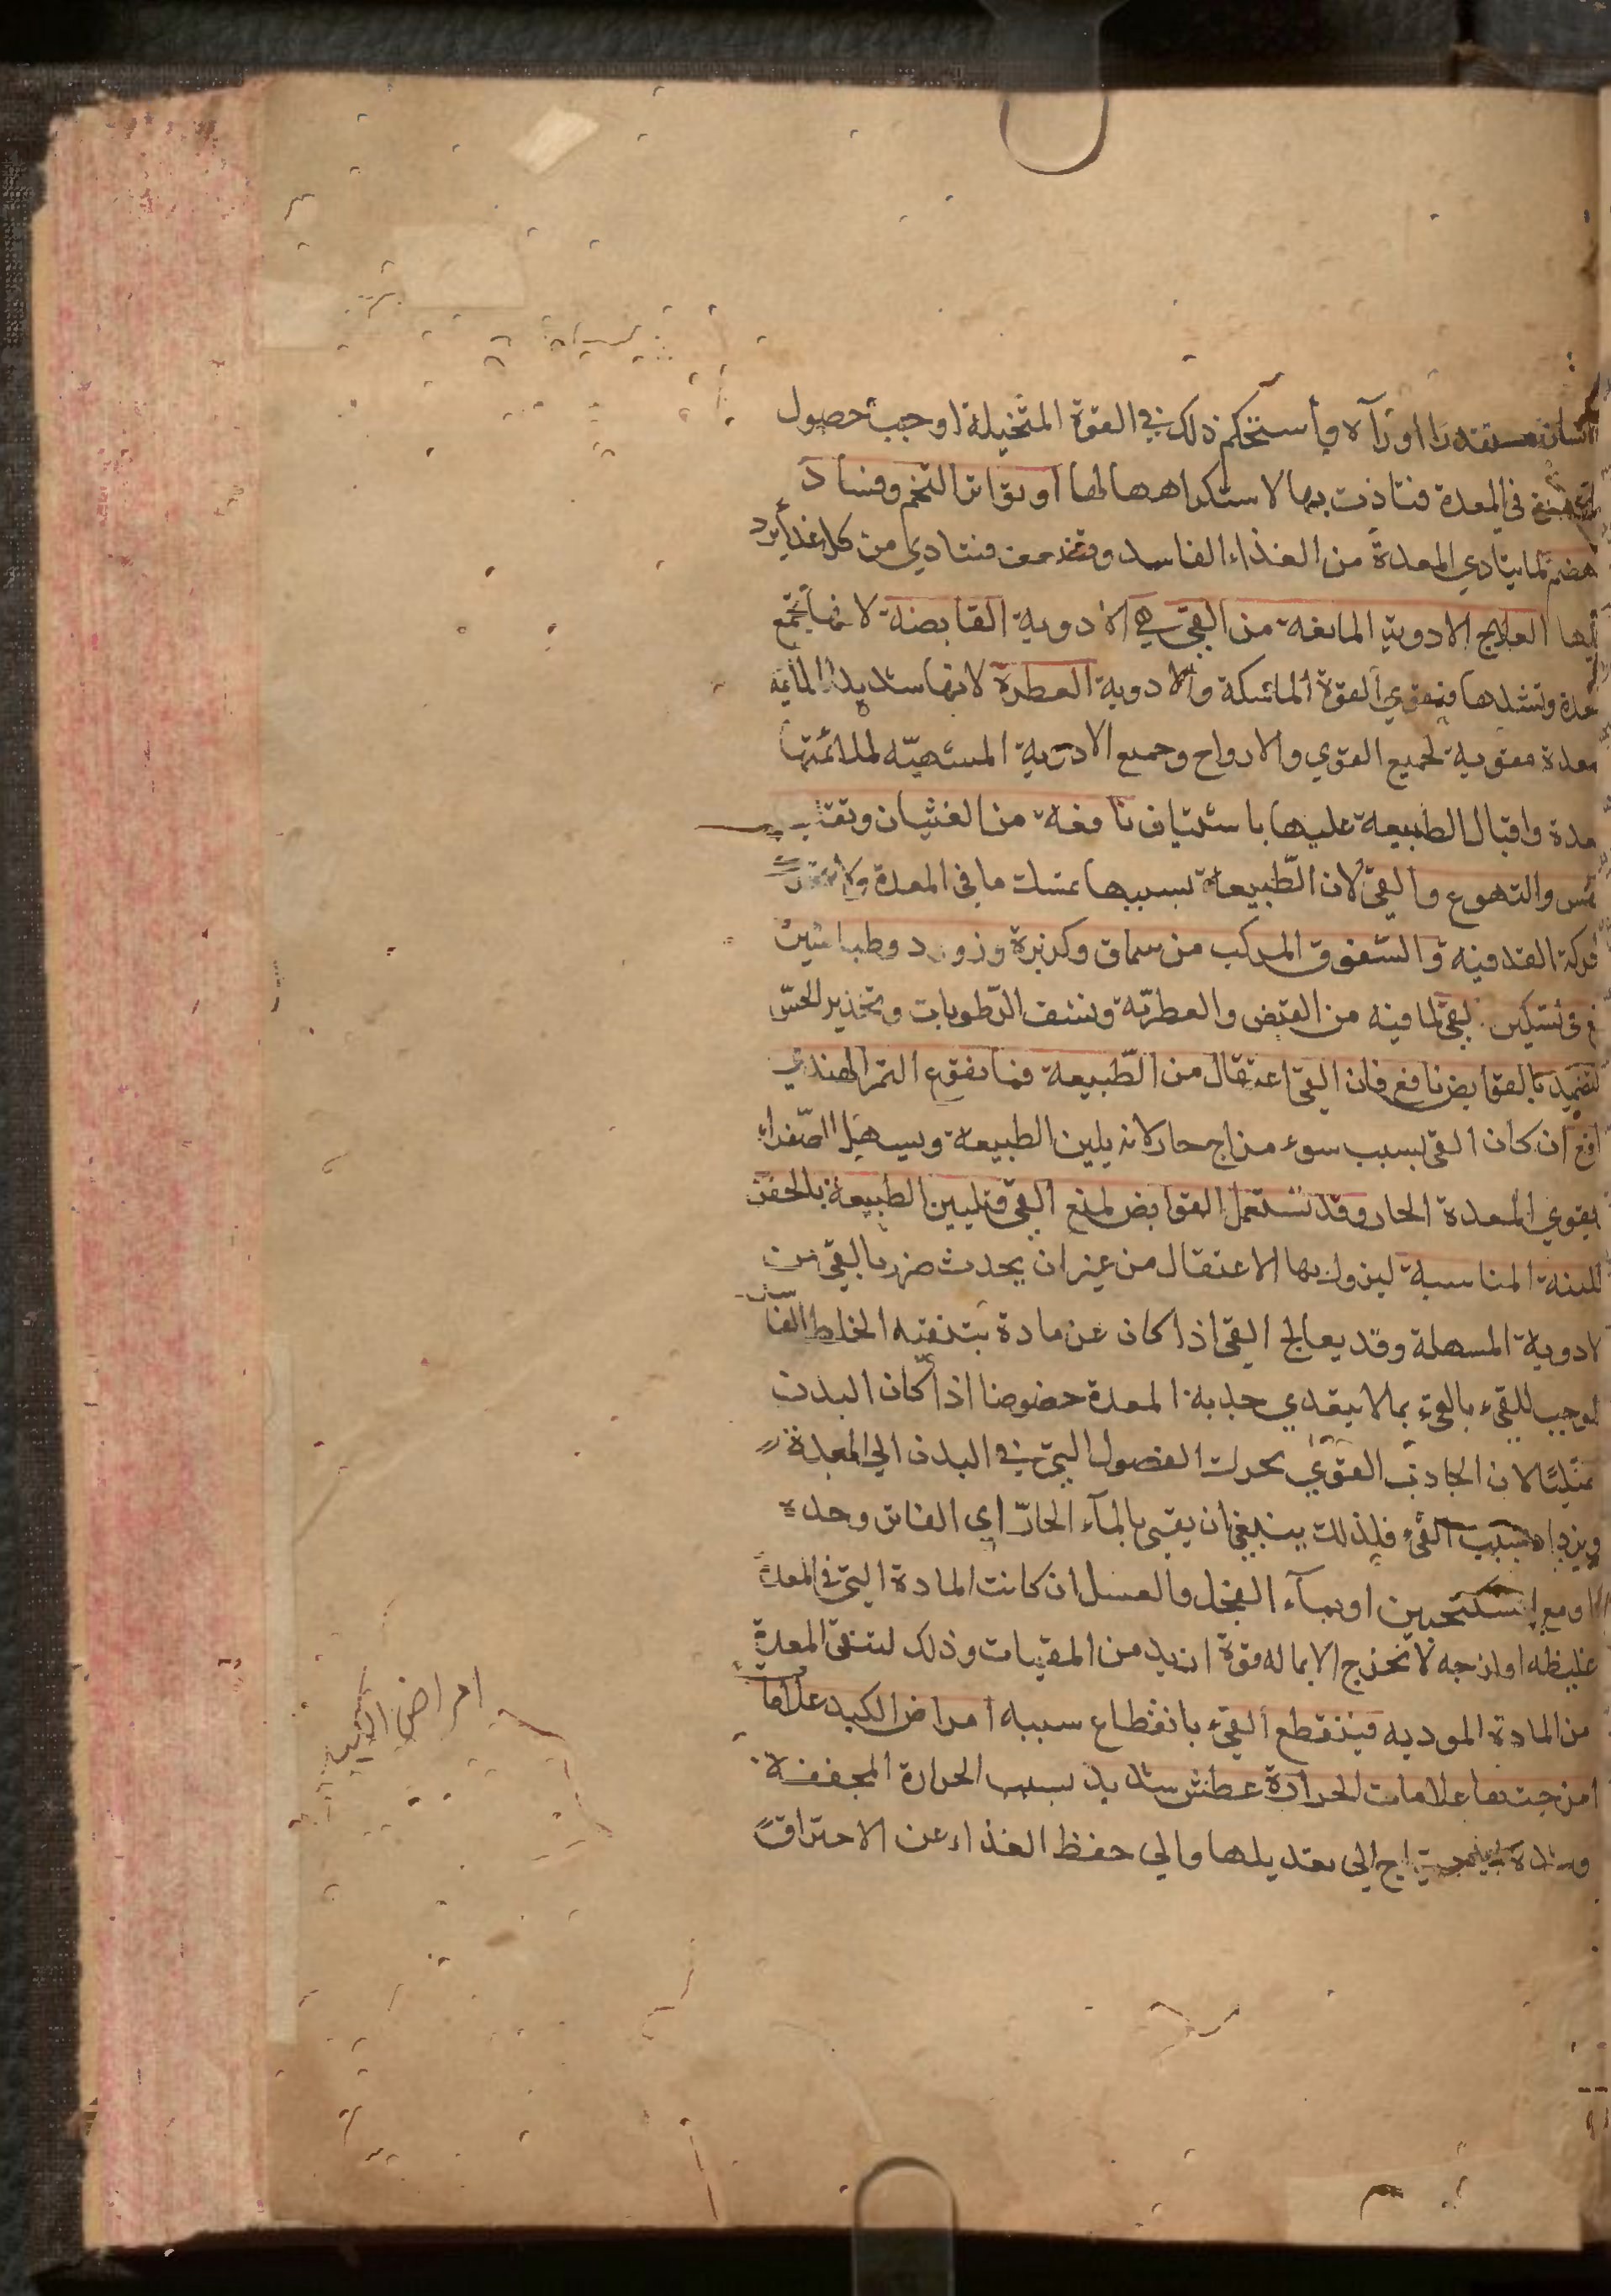 مستقذرا او رآه وأستحكم ذلك في القوة المتخيلة اوجب حصول
في المعدة فتاذت بها لاستكراهها لها او تواتر التخم وفساد
هضم لما يتادي المعدة من الغذاء الفاسد وتضعف فتتادي من كل غذا يرد
العلاج الادوية المانعة من القيء هي الادوية القابضة لانها تجمع
وتشدها فيقوي القوة الماسكة والادوية العطرة لانها شديدة الملايمة
معدة مقوية لجميع القوي والارواح وجميع الادوية المشهية لملائمتها
معدة واقبال الطبيعة عليها باشتياف نافعة من الغثيان وتقلب
والتهوع والقئ لان الطبيعة بسببها عسك ما في المعدة ولا تتحرك
حركة القذفيه والسفوف المركب من سماق وكزبرة وزرورد وطباشير
في تسكين القئ لما فيه من القبض والعطرية ونشف الرطوبات وتخذير الحس
التضميد بالقوابض نافع فان القئ اعتقال من الطبيعة فما نقوع التمر الهندي
ان كان القئ بسبب سوء مزاج حار لانه يلين الطبيعة ويسهل الصفراء
يقوي المعدة الحار وقد تستعمل القوابض لمنع القئ وتليين الطبيعة بالحقن
اللينة المناسبة ليزول بها الاعتقال من غير ان يحدث ضرر بالقئ من
لادوية المسهلة وقد يعالج القئ اذا كان عن مادة بتنقية الخلط الفا
سد
لموجب للقيء بالقيء بما لا يتعدي جذبه المعدة خصوصا اذا كان البدن
ممتليًا لان الجاذب القوي يحرك الفضول التي في البدن الي المعدة
ويزداد بسبب القيء فلذلك ينبغي ان يقيي بالمآء الحار اي الفاتر وحده
او مع السكنجبين او بمآء الفجل والعسل ان كانت المادة التي في المعدة
غليظه او لزجه لا تخرج الا بما له قوة ازيد من المقيات وذلك لتنقي المعدة
من المادة الموديه فينقطع القيء بانقطاع سببه امراض الكبد علامات
امزجتها علامات الحرارة عطش شديد بسبب الحرارة المجففة
وشدة يحتاج الي تعديلها والي حفظ الغذاء عن الاحتراق
امراض الكبد